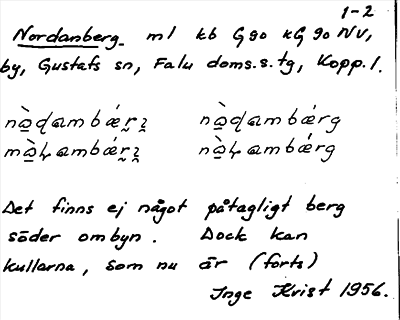 1-2
Nordanberg ml kb G 90 kG 90 NV,
by, Gustafs sn, Falu doms.s. tg, Kopp.l.
Det finns ej något påtagligt berg
söder om byn. Dock kan
kullarna, som nu är (forts)
Inge Kvist 1956.